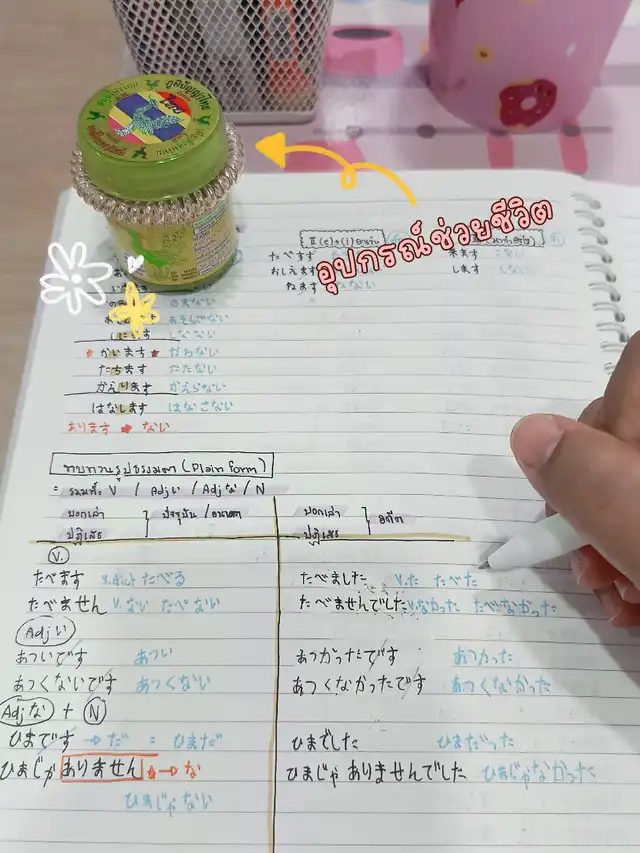 สมุนไพรไทย ภูมิปัญญาไทย
อุปกรณ์ช่วยชีวิต
II (e)+(i) ยกเว้น
たべます
おしえます
ねます
ない
来ます
します しない
のまない
あそばない
しにます しなない
かいます かわない
たちます たたない
かえります かえらない
はなします はなさない
あります ない
ทบทวนรูปธรรมดา (Plain form)
= รวมทั้ง V / Adjい / Adjな / N
บอกเล่า
ปฏิเสธ
ปัจจุบัน / อนาคต
บอกเล่า
ปฏิเสธ
อดีต
V.
たべます V.dict たべる
たべました V.た たべた
たべません V.ない たべない
たべませんでした V.なかった たべなかった
Adjい
あついです あつい
あつかったです あつかった
あつくないです あつくない
あつくなかったです あつくなかった
Adjな + N
ひまです → だ = ひまだ
ひまでした ひまだった
ひまじゃありません → な
ひまじゃありませんでした ひまじゃなかった
ひまじゃない